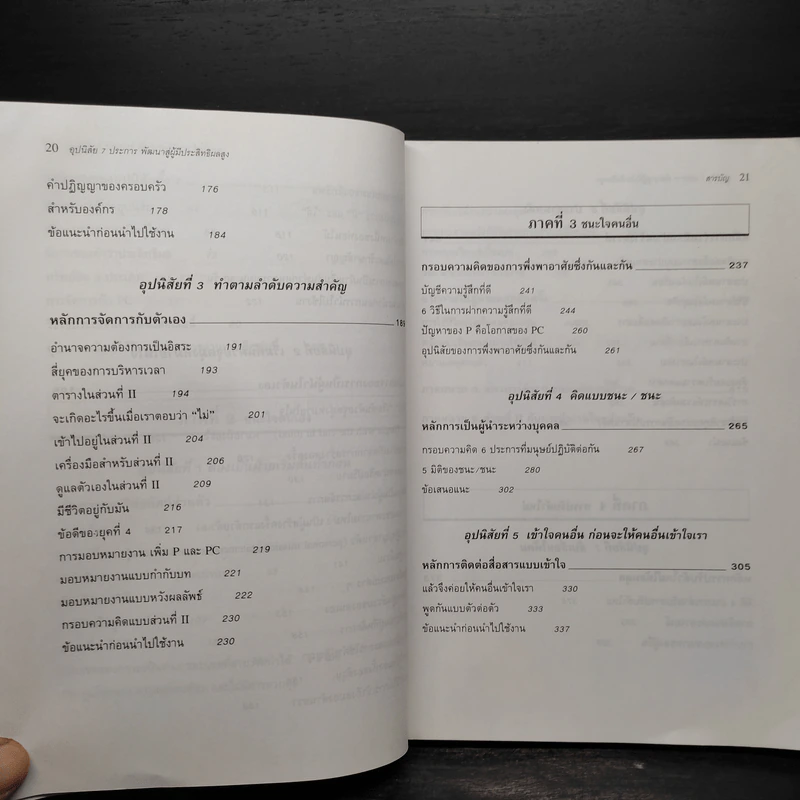 20 อุปนิสัย 7 ประการ พัฒนาสู่ผู้มีประสิทธิผลสูง
คำปฏิญญาของครอบครัว 176
สำหรับองค์กร 178
ข้อแนะนำก่อนนำไปใช้งาน 184
อุปนิสัยที่ 3 ทำตามลำดับความสำคัญ
หลักการจัดการกับตัวเอง 189
อำนาจความต้องการเป็นอิสระ 191
สี่ยุคของการบริหารเวลา 193
ตารางในส่วนที่ II 194
จะเกิดอะไรขึ้นเมื่อเราตอบว่า “ไม่” 201
เข้าไปอยู่ในส่วนที่ II 204
เครื่องมือสำหรับส่วนที่ II 206
ดูแลตัวเองในส่วนที่ II 209
มีชีวิตอยู่กับมัน 216
ข้อดีของยุคที่ 4 217
การมอบหมายงาน เพิ่ม P และ PC 219
มอบหมายงานแบบกำกับบท 221
มอบหมายงานแบบหวังผลลัพธ์ 222
กรอบความคิดแบบส่วนที่ II 230
ข้อแนะนำก่อนนำไปใช้งาน 230
สารบัญ 21
ภาคที่ 3 ชนะใจคนอื่น
กรอบความคิดของการพึ่งพาอาศัยซึ่งกันและกัน 237
บัญชีความรู้สึกที่ดี 241
6 วิธีในการฝากความรู้สึกที่ดี 244
ปัญหาของ P คือโอกาสของ PC 260
อุปนิสัยของการพึ่งพาอาศัยซึ่งกันและกัน 261
อุปนิสัยที่ 4 คิดแบบชนะ / ชนะ
หลักการเป็นผู้นำระหว่างบุคคล 265
กรอบความคิด 6 ประการที่มนุษย์ปฏิบัติต่อกัน 267
5 มิติของชนะ/ชนะ 280
ข้อเสนอแนะ 302
อุปนิสัยที่ 5 เข้าใจคนอื่น ก่อนจะให้คนอื่นเข้าใจเรา
หลักการติดต่อสื่อสารแบบเข้าใจ 305
แล้วจึงค่อยให้คนอื่นเข้าใจเรา 330
พูดกันแบบตัวต่อตัว 333
ข้อแนะนำก่อนนำไปใช้งาน 337